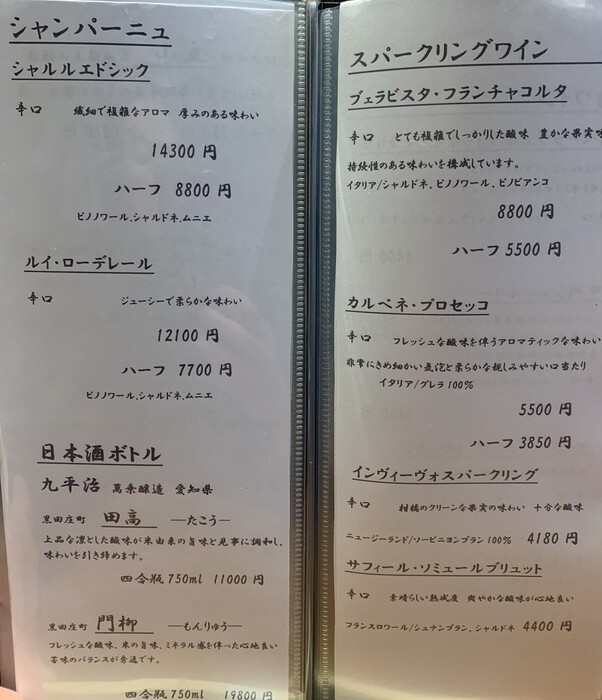 シャンパーニュ
シャルルエドシック
辛口　繊細で複雑なアロマ　厚みのある味わい
14300 円
ハーフ 8800 円
ピノノワール、シャルドネ、ムニエ
ルイ・ローデレール
辛口　ジューシーで柔らかな味わい
12100 円
ハーフ 7700 円
ピノノワール、シャルドネ、ムニエ
日本酒ボトル
九平治　萬乗醸造　愛知県
黒田庄町　田高　―たこう―
上品な凛とした酸味が米由来の旨味と見事に調和し、
味わいを引き締めます。
四合瓶 750ml　11000 円
黒田庄町　門柳　―もんりゅう―
フレッシュな酸味、米の旨味、ミネラル感を伴った心地良い
苦味のバランスが秀逸です。
四合瓶 750ml　19800 円
スパークリングワイン
ブェラビスタ・フランチャコルタ
辛口　とても複雑でしっかりした酸味　豊かな果実味
持続性のある味わいを構成しています。
イタリア/シャルドネ、ピノノワール、ピノビアンコ
8800 円
ハーフ 5500 円
カルペネ・プロセッコ
辛口　フレッシュな酸味を伴うアロマティックな味わい
非常にきめ細かい気泡と柔らかな親しみやすい口当たり
イタリア/グレラ 100%
5500 円
ハーフ 3850 円
インヴィーヴォスパークリング
辛口　柑橘のクリーンな果実の味わい　十分な酸味
ニュージーランド/ソービニヨンブラン 100%　4180 円
サフィール・ソミュールブリュット
辛口　素晴らしい熟成度　爽やかな酸味が心地良い
フランスロワール/シュナンブラン、シャルドネ　4400 円